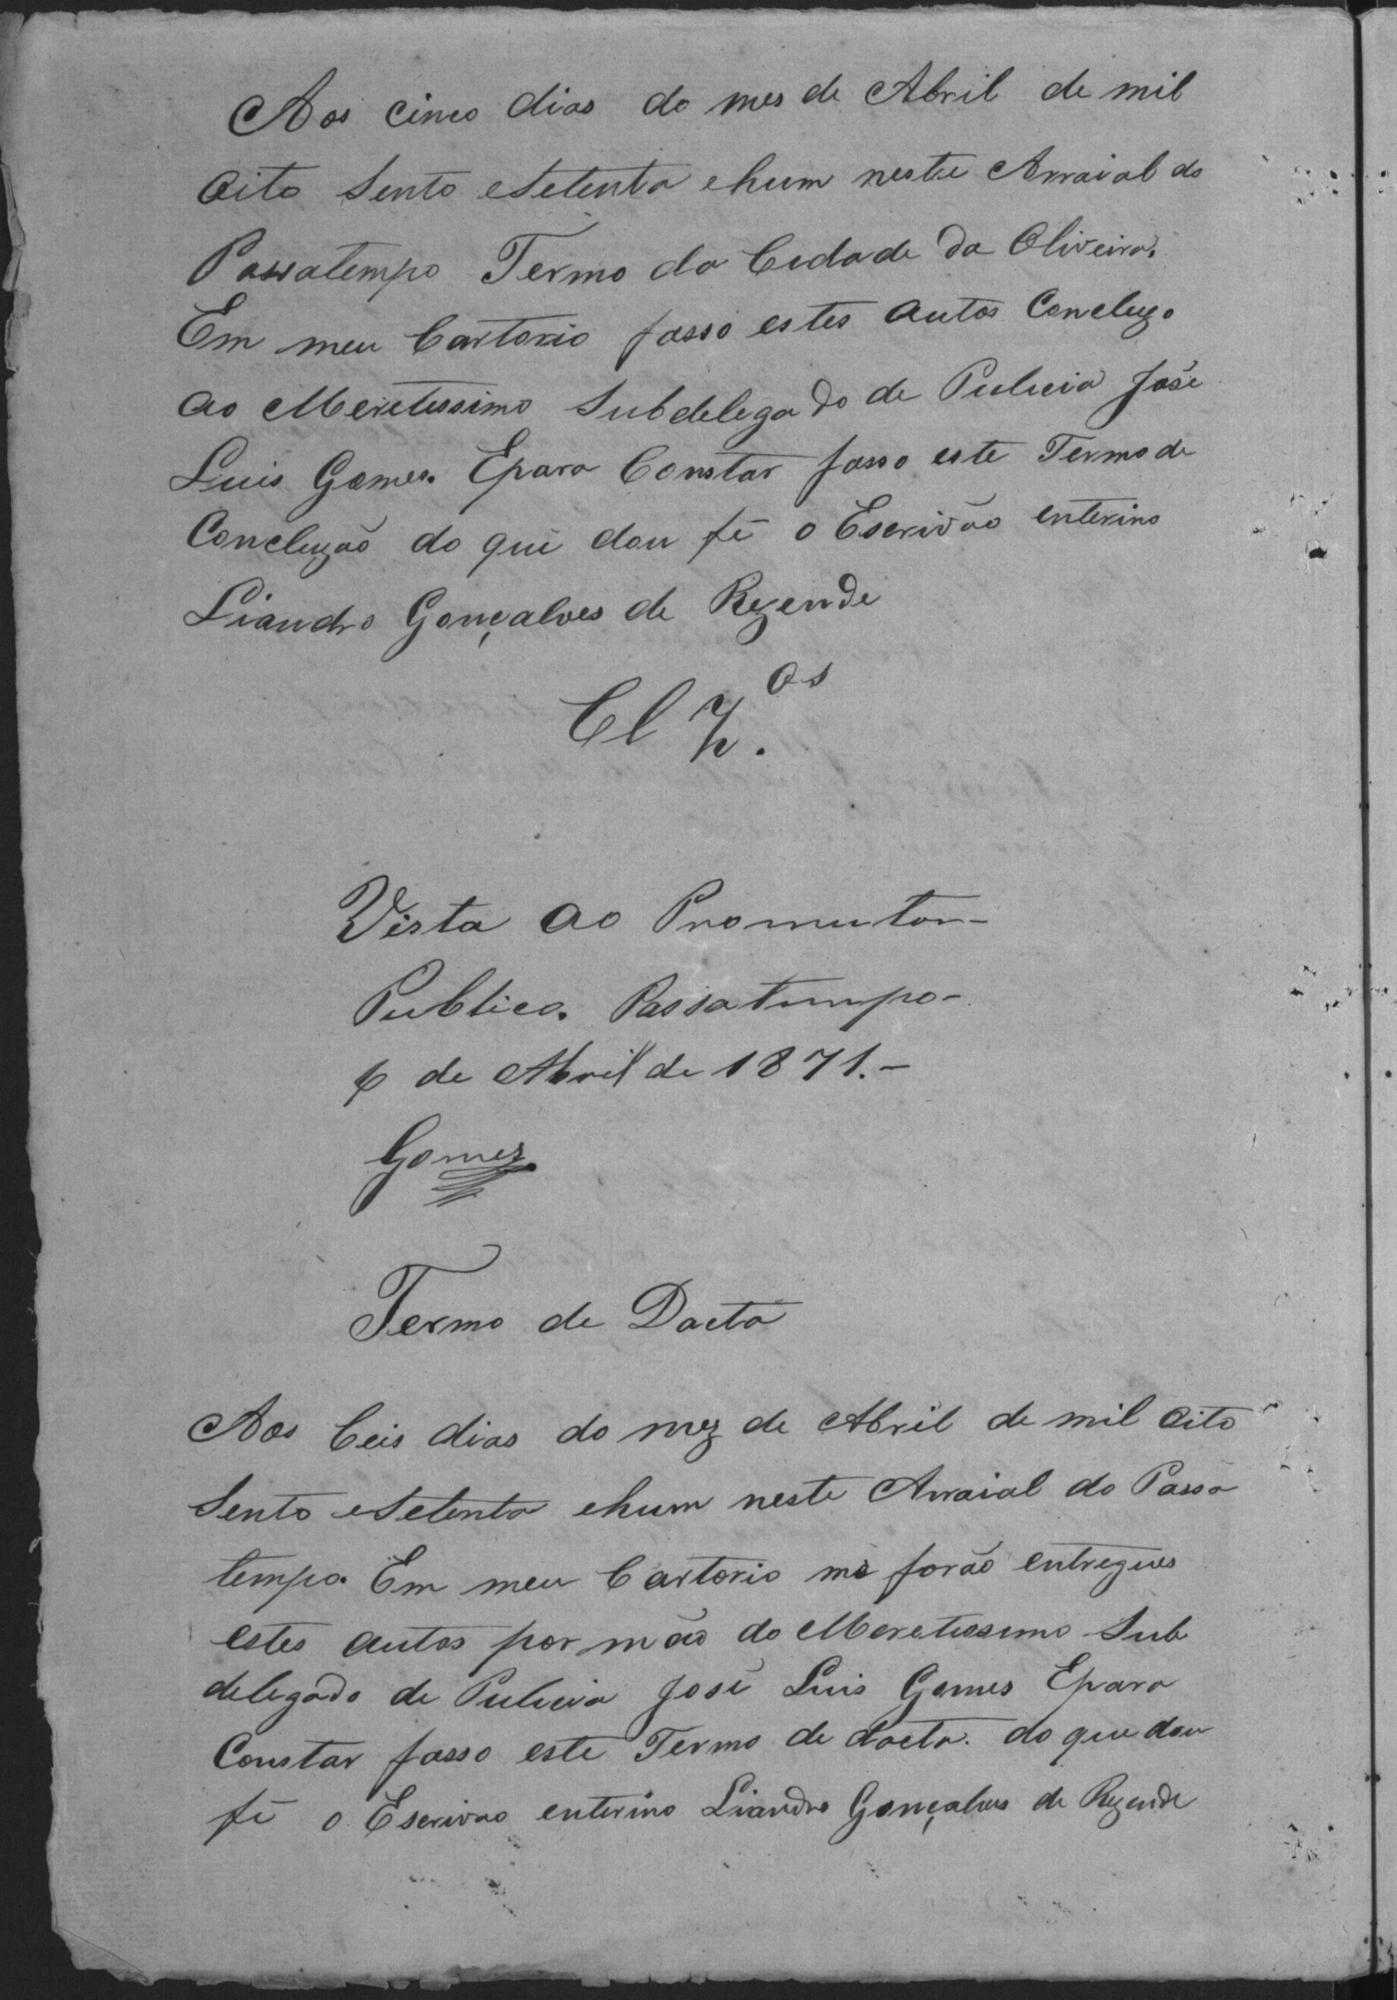 Aos cinco dias do mes de Abril de mil
oito Sento e Setenta e hum neste Arraial do
Passatempo Termo da Cidade da Oliveira.
Em meu Cartorio fasso estes autos Concluzo
ao Meretissimo Subdelegado de Pulicia José
Luis Gomes. E para Constar fasso este Termo de
Concluzão do que dou fé o Escrivão enterino
Liandro Gonçalves de Rezende
Clz.os
Vista ao Promutor-
Publico. Passatempo-
6 de Abril de 1871.-
Gomes
Termo de Dacta
Aos Ceis dias do mez de Abril de mil oito
Sento e Setenta e hum neste Arraial do Passa
tempo. Em meu Cartorio me forão entregues
estes autos por mão do Meretissimo Sub
delegado de Pulicia José Luis Gomes E para
Constar fasso este Termo de dacta. do que dou
fé o Escrivao enterino Liandro Gonçalves de Rezende